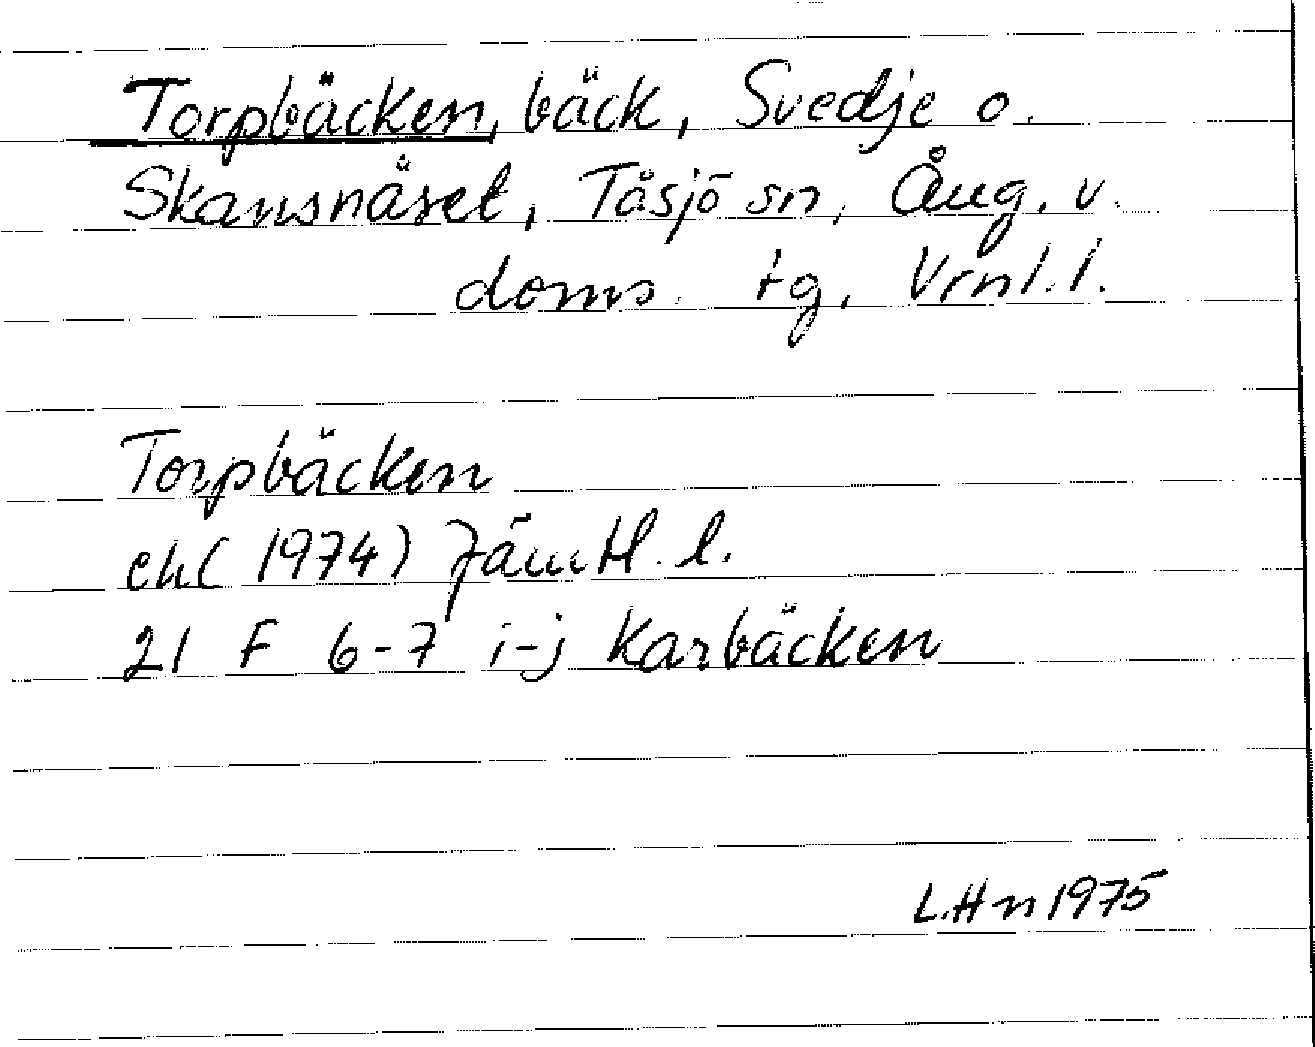 Torpbäcken, bäck, Svedje o.
Skansnäset, Tåsjö sn, Ång. v.
doms. tg, Vrnl. l.
Torpbäcken
ekl (1974) Jämtl. l.
21 F 6-7 i-j Karbäcken
L.Hn 1975